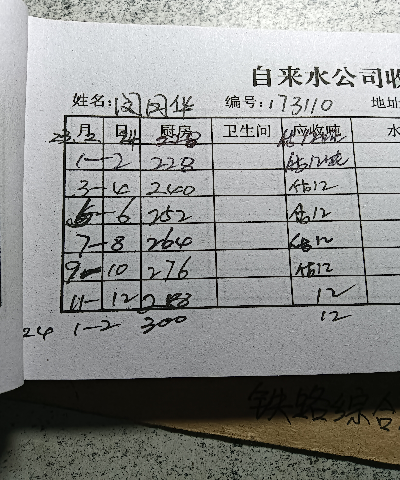 自来水公司收
姓名: 闵国华 编号: 173110 地址
月 日 厨房 卫生间 应收吨 水
1-2 228 估12吨
3-4 240 估12
5-6 252 估12
7-8 264 估12
9-10 276 估12
11-12 288 12
24 1-2 300 12
铁路综合